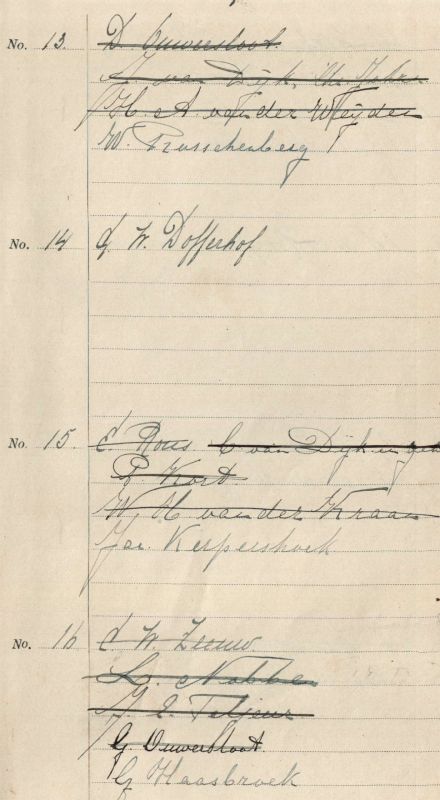 No. 13. D. Ouwersloot.
van Dijk,
H. A. van der Weijden
W. Prusschenberg
No. 14 W. Dofferhof
No. 15. Rous C van Dijk
Kort
W. H. van der Kraan
Jac. Kerpershoek
No. 16 W. Zeeuw.
Nobbe
Teljeur
G. Ouwersloot.
G Haasbroek